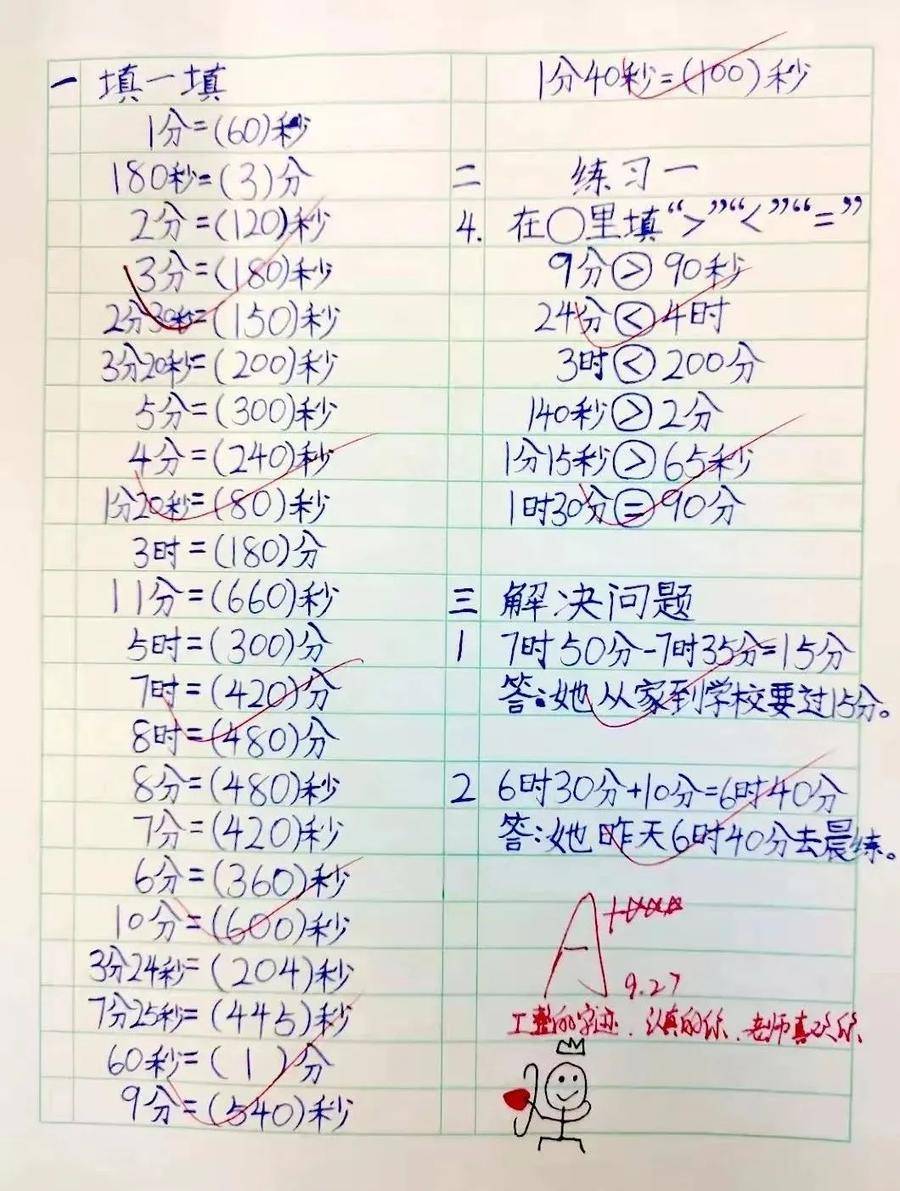 一 填一填
1分=(60)秒
180秒=(3)分
2分=(120)秒
3分=(180)秒
2分30秒=(150)秒
3分20秒=(200)秒
5分=(300)秒
4分=(240)秒
1分20秒=(80)秒
3时=(180)分
11分=(660)秒
5时=(300)分
7时=(420)分
8时=(480)分
8分=(480)秒
7分=(420)秒
6分=(360)秒
10分=(600)秒
3分24秒=(204)秒
7分25秒=(445)秒
60秒=(1)分
9分=(540)秒
1分40秒=(100)秒
二 练习一
4. 在○里填“>”“<”“=”
9分>90秒
24分<4时
3时<200分
140秒>2分
1分15秒>65秒
1时30分=90分
三 解决问题
1 7时50分-7时35分=15分
答:她从家到学校要过15分。
2 6时30分+10分=6时40分
答:她昨天6时40分去晨练。
A+
9.27
工整的字迹、认真的你、老师真欢你